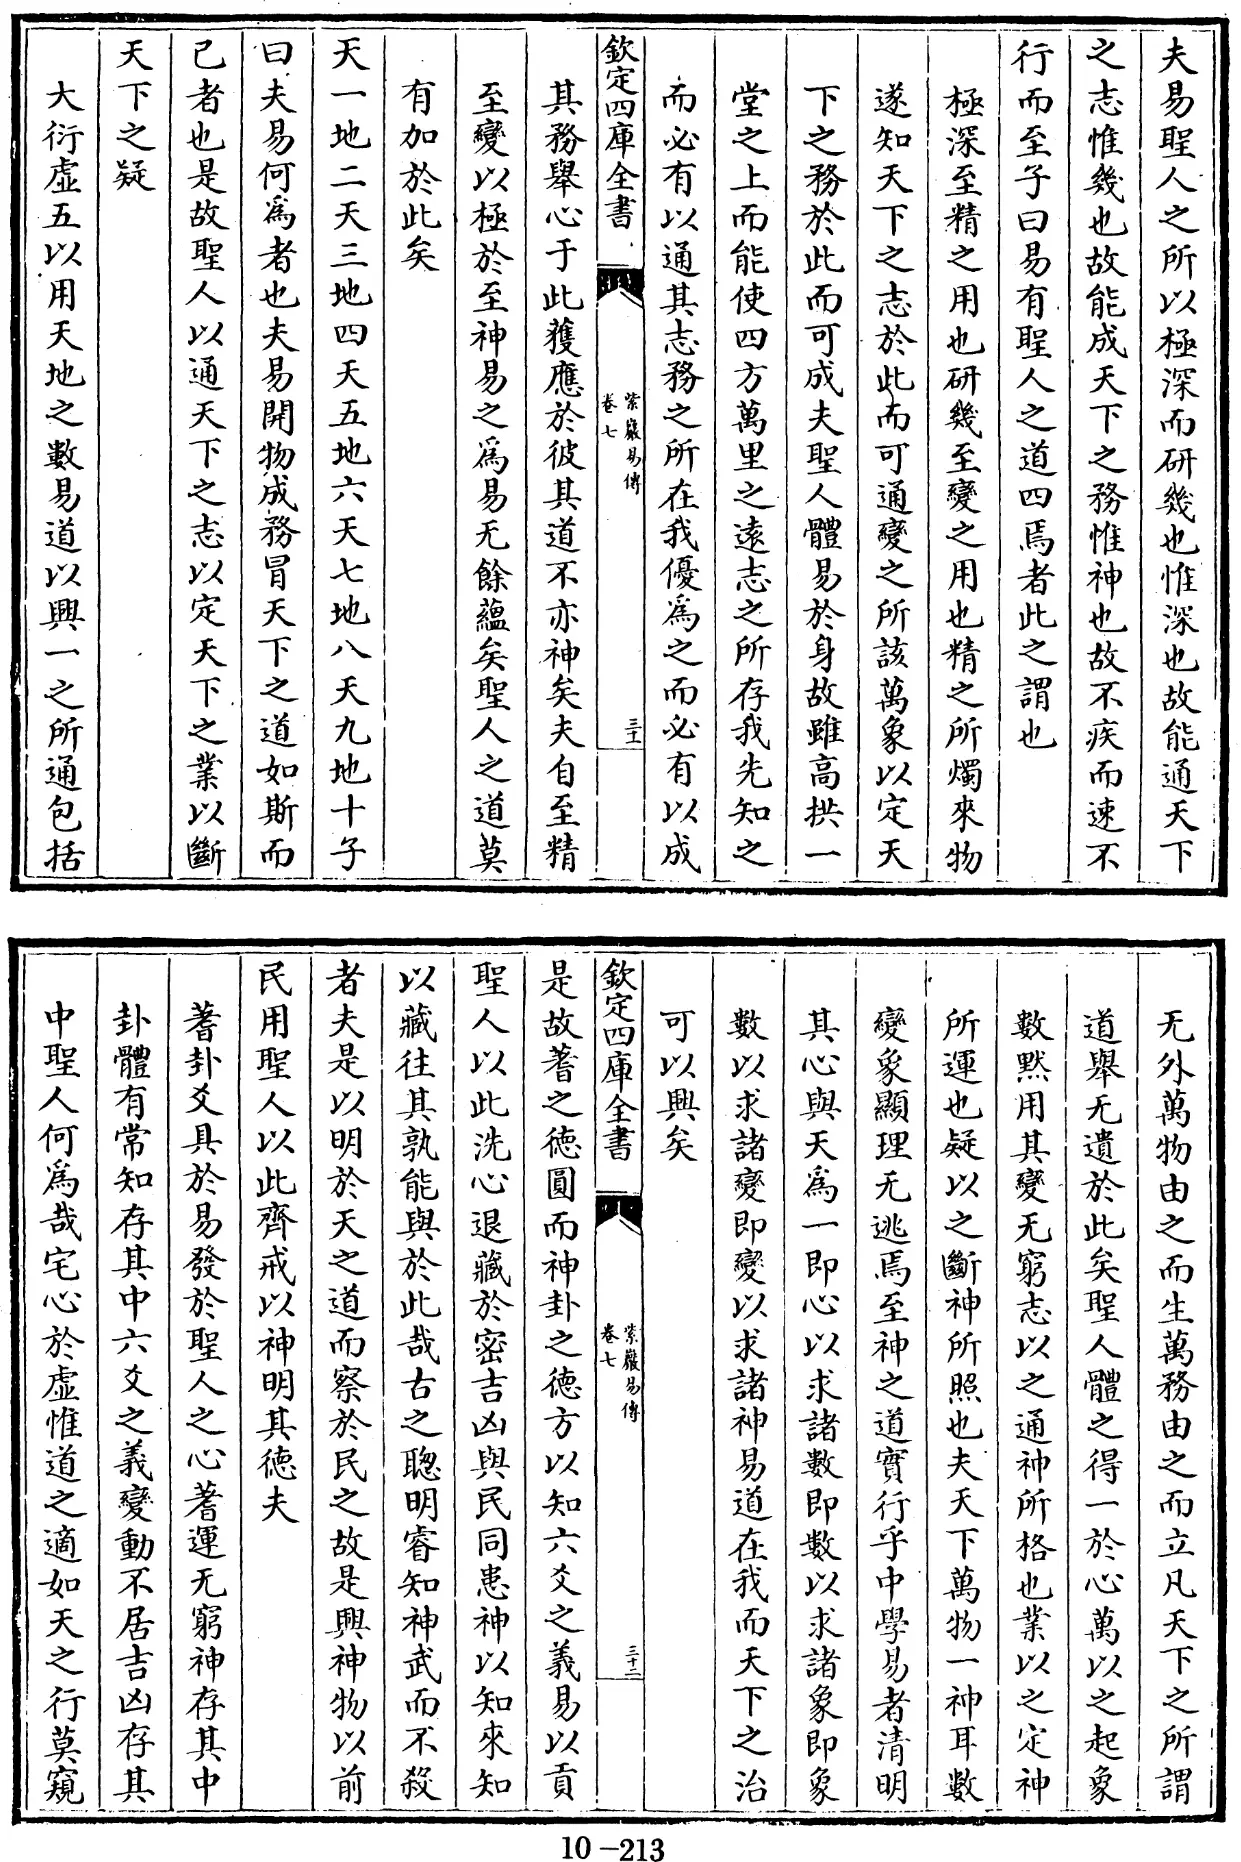 夫易聖人之所以極深而研幾也惟深也故能通天下
之志惟幾也故能成天下之務惟神也故不疾而速不
行而至子曰易有聖人之道四焉者此之謂也
極深至精之用也研幾至變之用也精之所燭來物
遂知天下之志於此而可通變之所該萬象以定天
下之務於此而可成夫聖人體易於身故雖高拱一
堂之上而能使四方萬里之遠志之所存我先知之
而必有以通其志務之所在我優為之而必有以成
欽定四庫全書
紫巖易傳
卷七
三十一
其務舉心于此獲應於彼其道不亦神矣夫自至精
至變以極於至神易之為易无餘蘊矣聖人之道莫
有加於此矣
天一地二天三地四天五地六天七地八天九地十子
曰夫易何為者也夫易開物成務冒天下之道如斯而
已者也是故聖人以通天下之志以定天下之業以斷
天下之疑
大衍虛五以用天地之數易道以興一之所通包括
无外萬物由之而生萬務由之而立凡天下之所謂
道舉无遺於此矣聖人體之得一於心萬以之起象
數黙用其變无窮志以之通神所格也業以之定神
所運也疑以之斷神所照也夫天下萬物一神耳數
變象顯理无逃焉至神之道實行乎中學易者清明
其心與天為一即心以求諸數即數以求諸象即象
數以求諸變即變以求諸神易道在我而天下之治
可以興矣
欽定四庫全書
紫巖易傳
卷七
三十二
是故蓍之德圓而神卦之德方以知六爻之義易以貢
聖人以此洗心退藏於密吉凶與民同患神以知來知
以藏往其孰能與於此哉古之聰明睿知神武而不殺
者夫是以明於天之道而察於民之故是興神物以前
民用聖人以此齊戒以神明其德夫
蓍卦爻具於易發於聖人之心蓍運无窮神存其中
卦體有常知存其中六爻之義變動不居吉凶存其
中聖人何為哉宅心於虛惟道之適如天之行莫窺
10-213